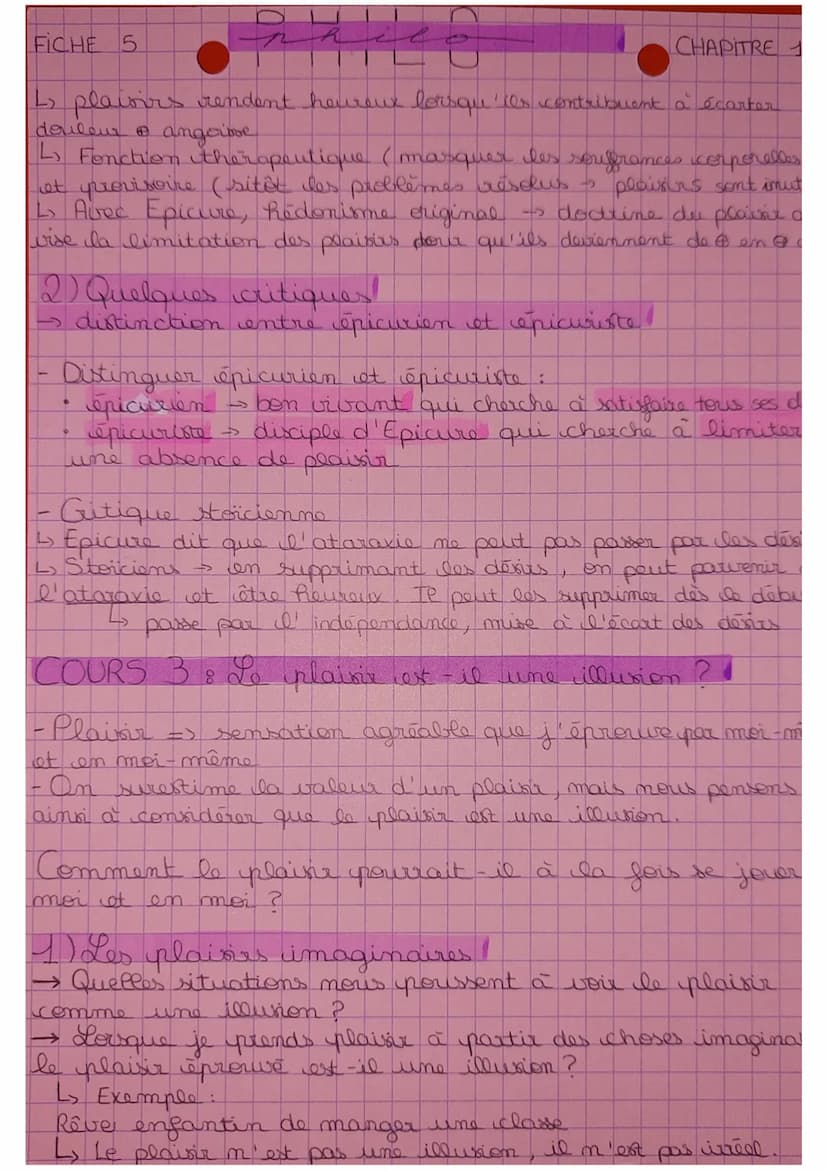 FICHE 5
philo
CHAPITRE 1
↳ plaisirs rendent heureux lorsqu'ils contribuent à écarter
douleur ⊕ angoisse
↳ Fonction thérapeutique (masquer les souffrances corporelles
et provisoire (sitôt les problèmes résolus → plaisirs sont inut
↳ Avec Epicure, hédonisme original → doctrine du plaisir q
vise la limitation des plaisirs pour qu'ils deviennent de ⊕ en ⊕
2) Quelques critiques
→ distinction entre épicurien et épicuriste
- Distinguer épicurien et épicuriste :
• épicurien → bon vivant qui cherche à satisfaire tous ses d
• épicuriste → disciple d'Epicure qui cherche à limiter
une absence de plaisir
- Critique stoïcienne
↳ Epicure dit que l'ataraxie ne peut pas passer par les dési
↳ Stoïciens → en supprimant les désirs, on peut parvenir
l'ataraxie et être heureux. Il peut les supprimer dès le débu
↳ passe par l'indépendance, mise à l'écart des désirs
COURS 3 : Le plaisir est-il une illusion ?
- Plaisir => sensation agréable que j'éprouve par moi-m
et en moi-même
- On surestime la valeur d'un plaisir, mais nous pensons
ainsi à considérer que le plaisir est une illusion.
Comment le plaisir pourrait-il à la fois se jouer
moi et en moi ?
1) Les plaisirs imaginaires
→ Quelles situations nous poussent à voir le plaisir
comme une illusion ?
→ Lorsque je prends plaisir à partir des choses imagina
le plaisir éprouvé est-il une illusion ?
↳ Exemple :
Rêve enfantin de manger une classe
↳ Le plaisir n'est pas une illusion, il n'est pas irréel.